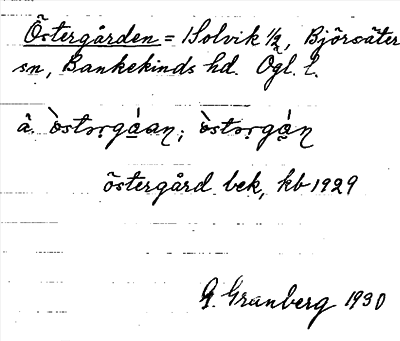 Östergården = Solvik 1/2, Björsäter
sn, Bankekinds hd. Ögl. l.
å. òstərgá̱an; òstərgá̱n
östergård bek, kb 1929
G. Granberg 1930